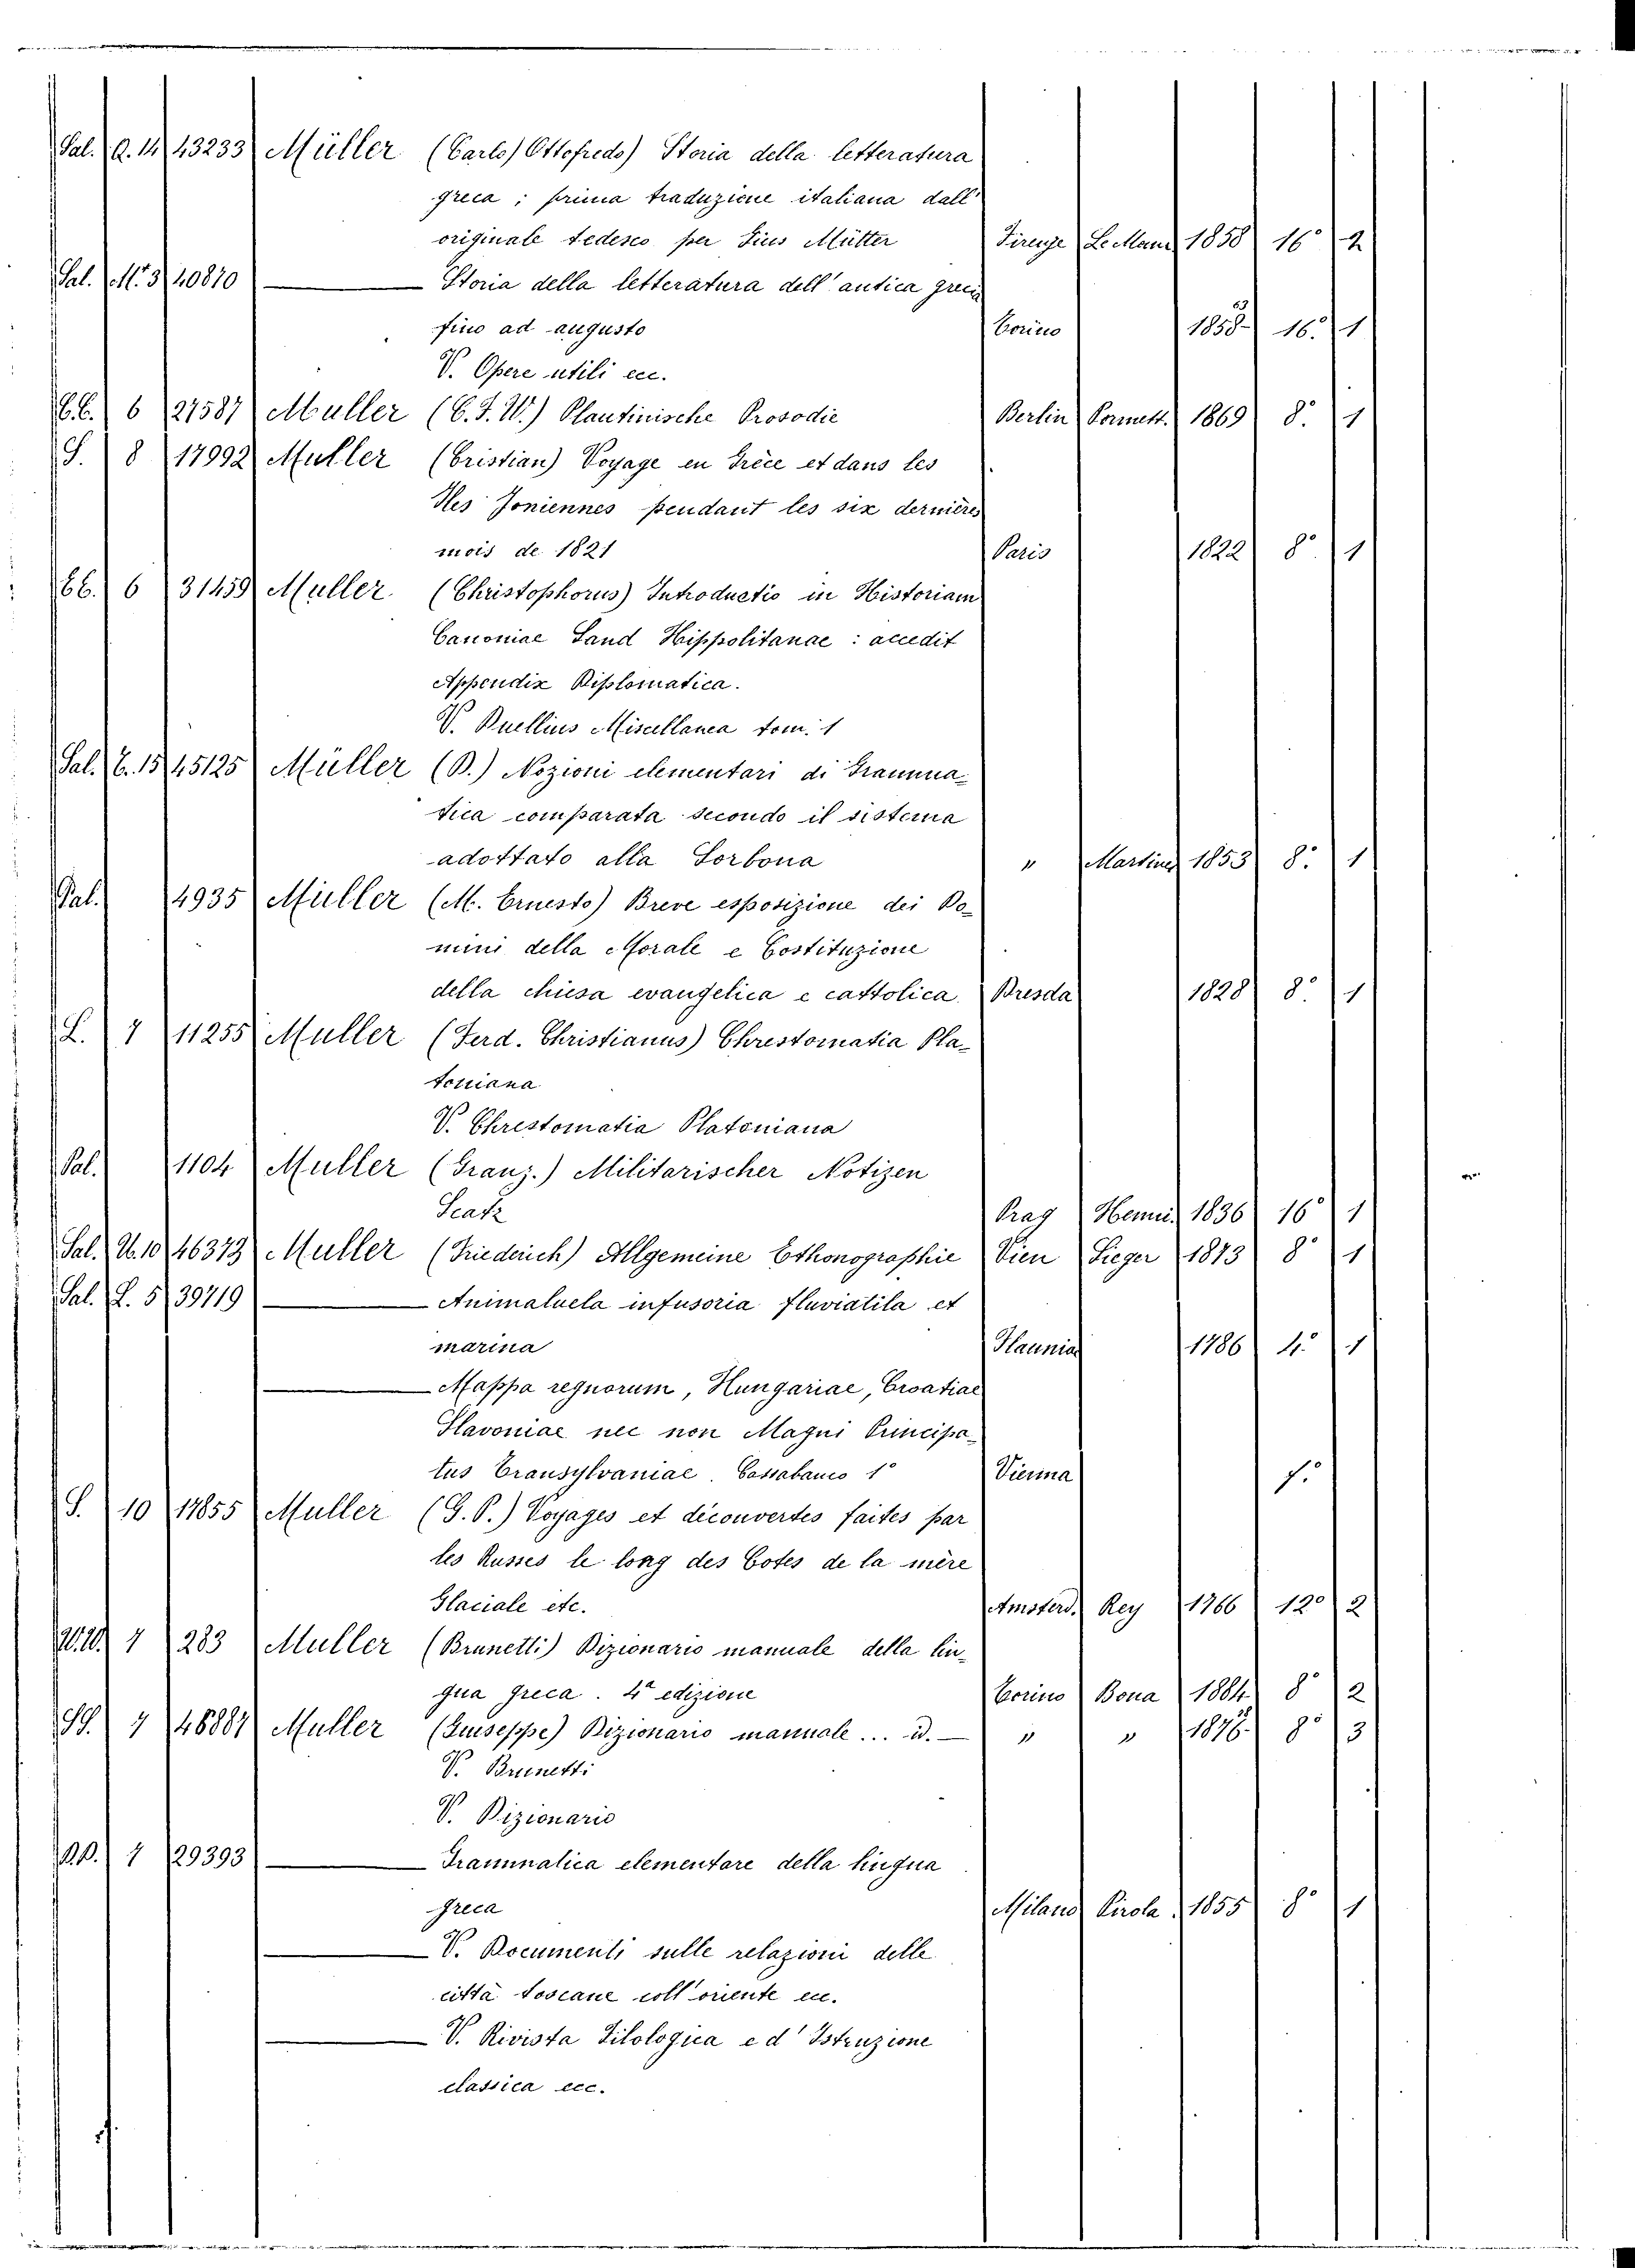 Sal. Q. 14 43233 Müller (Carlo) Ottofredo) Storia della letteratura
greca ; prima traduzione italiana dall'
originale tedesco per Eius Mütter Firenze Le Mann 1858 16° 2
Sal. M. 3 40870 Storia della letteratura dell' antica grecia
fino ad augusto Torino 1858-63 16. 1
V. Opere utili ecc.
C.C. 6 27587 Muller (C. F. W.) Plautinische Prosodie Berlin 1869 8. 1
S. 8 17992 Muller (Cristian) Voyage en Grèce et dans les
Iles Joniennes pendant les six dernières
mois de 1821 Paris 1822 8° 1
CC. 6 31459 Muller (Christophorus) Introductio in Historiam
Canoniae Sand Hippolitanae : accedit
Appendix Diplomatica.
V. Duellius Miscellanea tom. 1
Sal. C. 15 45125 Müller (B.) Nozioni elementari di Gramma-
tica comparata secondo il sistema
adottato alla Sorbona " Martine 1853 8. 1
Pal. 4935 Müller (M. Ernesto) Breve esposizione dei Do-
mini della Morale e Costituzione
della chiesa evangelica e cattolica. Dresda 1828 8° 1
L. 7 11255 Muller (Ferd. Christianus) Chrestomatia Pla-
toniana
V. Chrestomatia Platoniana
Pal. 1104 Muller (Franz.) Militarischer Notizen
Scatz Prag 1836 16° 1
Sal. U. 10 46373 Muller (Friederich) Allgemeine Ethonographie Vien Sieger 1873 8° 1
Sal. L. 5 39719 Animaluela infusoria fluviatila et
marina Haunia 1786 4.° 1
Mappa regnorum, Hungariae, Croatiae
Slavoniae nec non Magni Principa-
tus Transylvaniae. 1° Vienna f.°
S. 10 17855 Muller (G. P.) Voyages et découvertes faites par
les Russes le long des Cotes de la mère
Glaciale etc. Amsterd. Rey 1766 12° 2
W.W. 7 283 Muller (Brunetti) Dizionario manuale della lin-
gua greca. 4a edizione Torino Bona 1884 8° 2
SS. 7 46887 Muller (Giuseppe) Dizionario manuale ... id. — " " 1876. 8° 3
V. Brunetti
V. Dizionario
P.P. 7 29393 Grammatica elementare della lingua
greca Milano Pirola 1855 8° 1
V. Documenti sulle relazioni delle
città toscane coll'oriente ec.
V. Rivista Filologica e d' Istruzione
classica ecc.